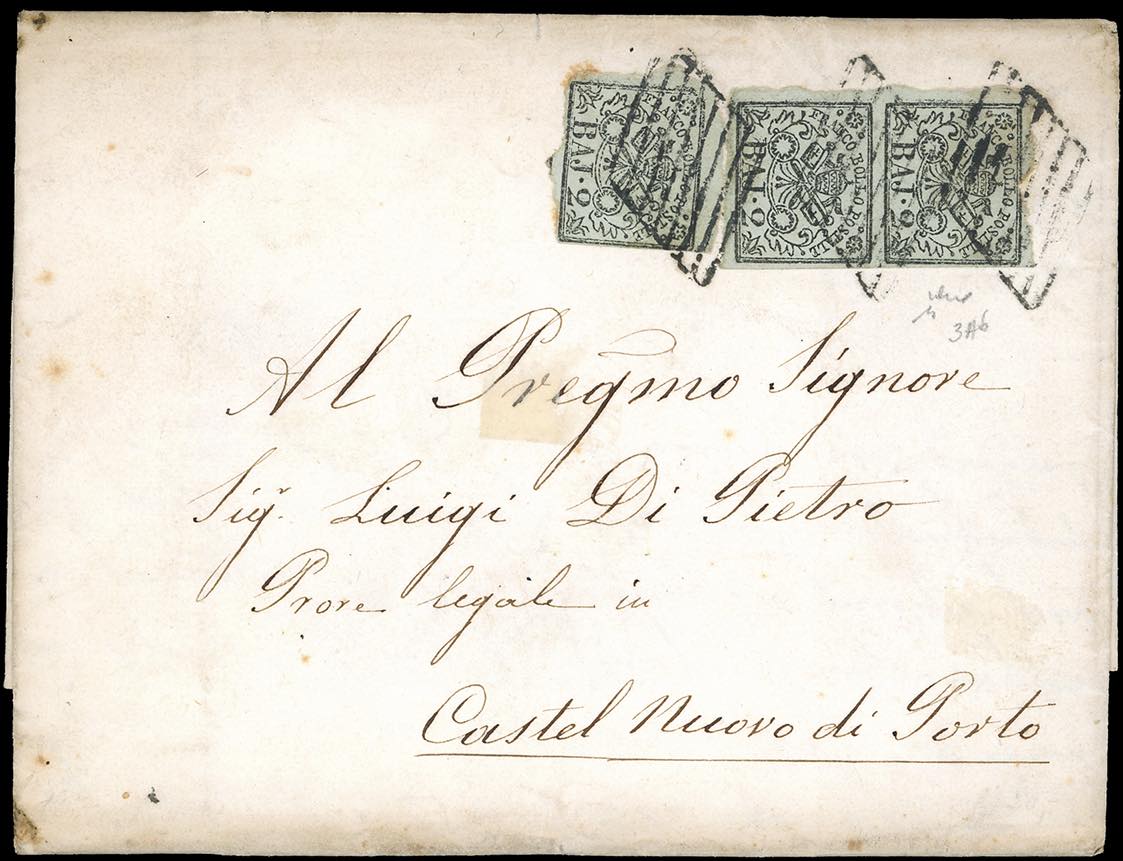 FRANCO BOLLO POSTALE
BAJ. 2
FRANCO BOLLO POSTALE
BAJ. 2
FRANCO BOLLO POSTALE
BAJ. 2
3A6
Al Pregmo Signore
Sigr. Luigi Di Pietro
Prore legale in
Castel Nuovo di Porto